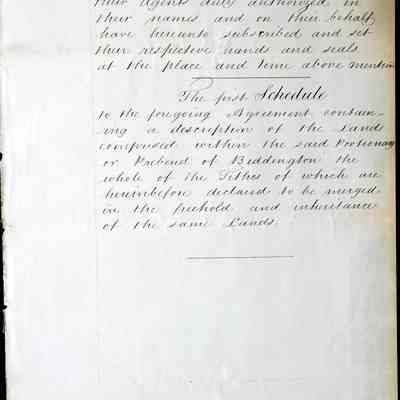 their Agents duly authorized in
their names and on their behalf
have hereunto subscribed and set
their respective hands and seals
at the place and time above mention
The first Schedule
to the foregoing Agreement contain-
ing a description of the Lands
comprised within the said Portionary
or Prebend of Beddington the
whole of the Tithes of which are
hereinbefore declared to be merged
in the freehold and inheritance
of the same Lands.